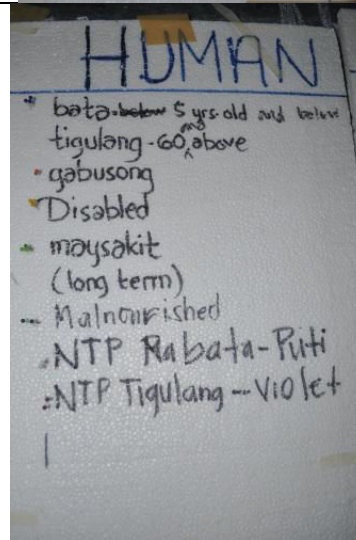 HUMAN
bata - below 5 yrs. old and below
tigulang - 60 and above
gabusong
Disabled
maysakit
(long term)
Malnourished
NTP Rabata - Puti
NTP Tigulang - Violet